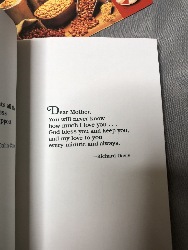 Dear Mother,
You will never know
how much I love you . . .
God bless you and keep you,
and my love to you
every minute and always.
—Richard